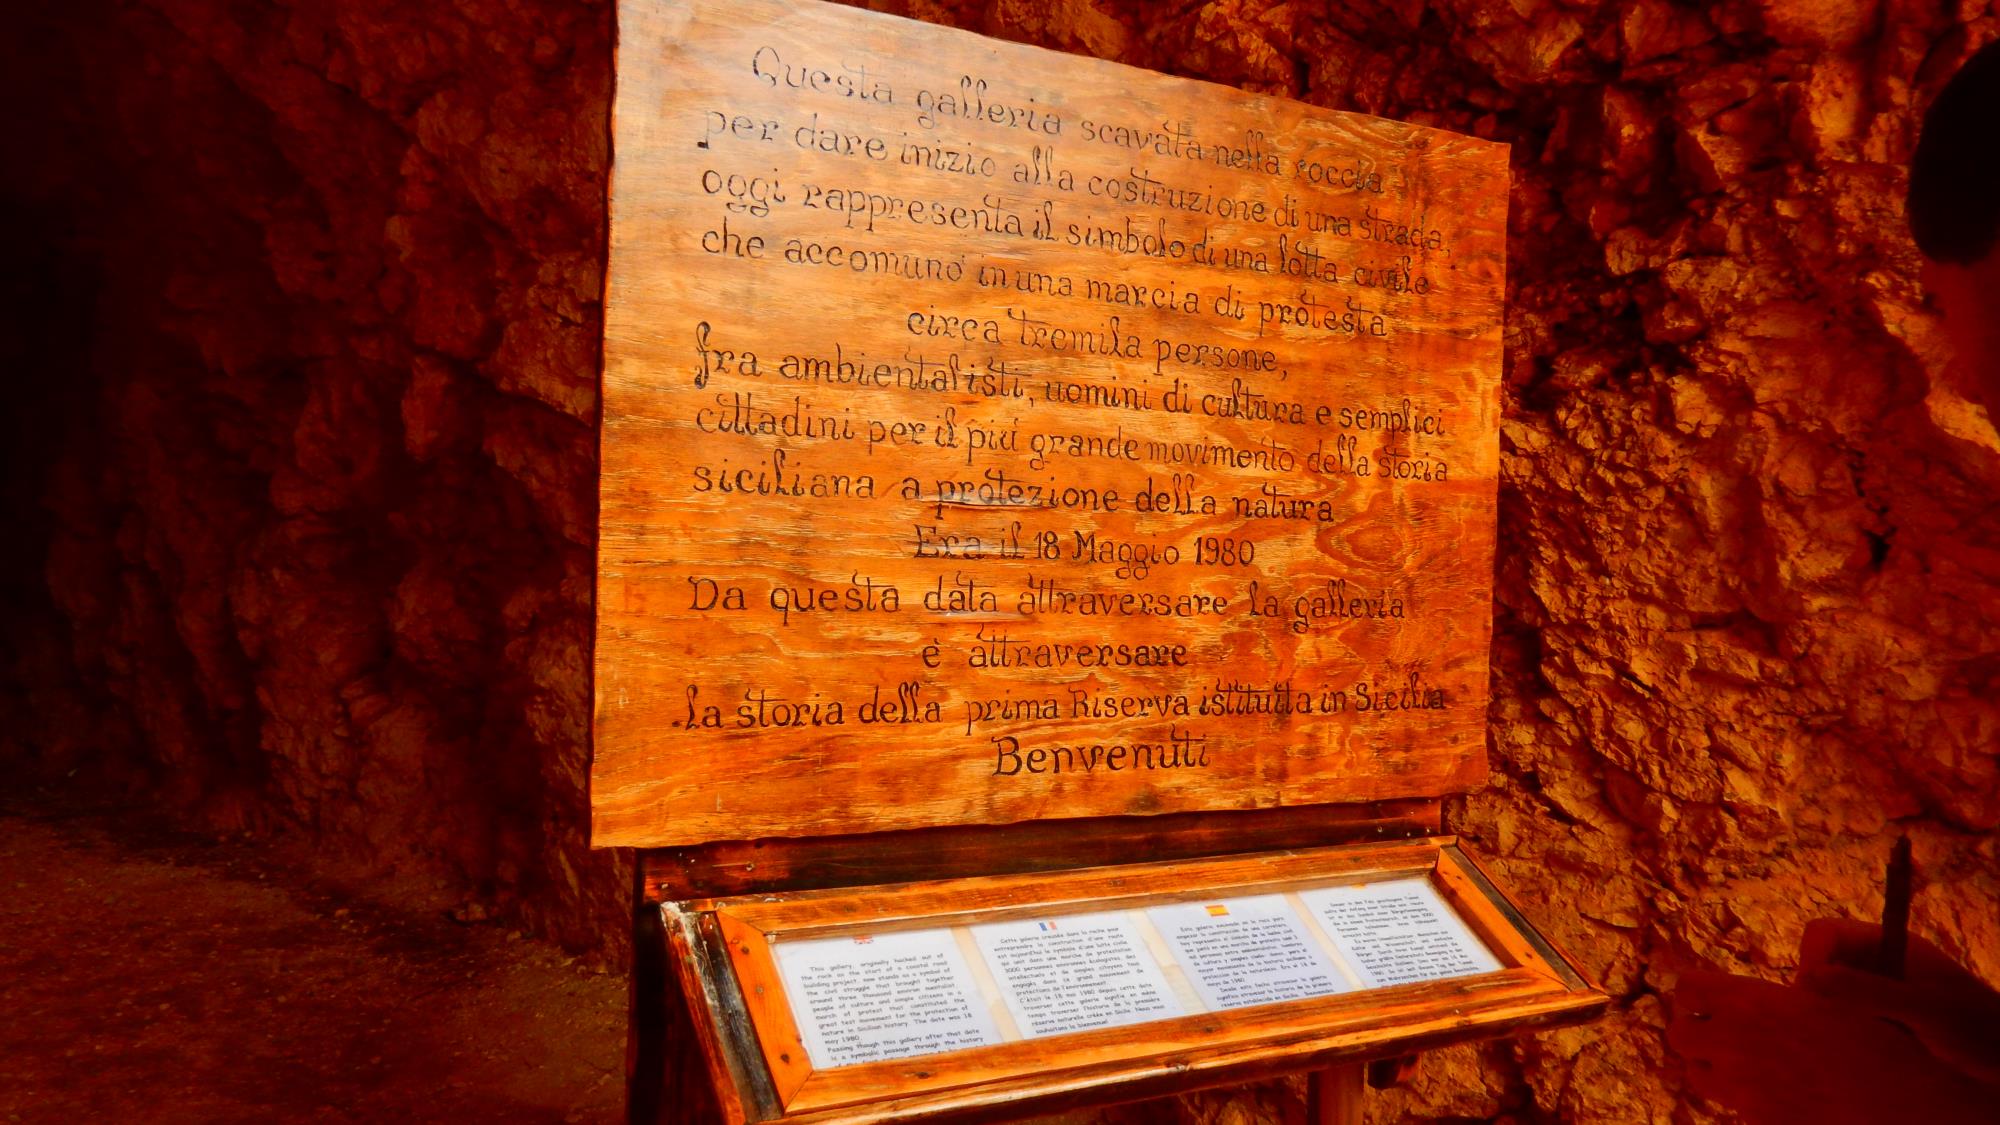 Questa galleria scavata nella roccia
per dare inizio alla costruzione di una strada,
oggi rappresenta il simbolo di una lotta civile
che accomunò in una marcia di protesta
circa tremila persone,
fra ambientalisti, uomini di cultura e semplici
cittadini per il più grande movimento della storia
siciliana a protezione della natura
Era il 18 Maggio 1980
Da questa data attraversare la galleria
è attraversare
la storia della prima Riserva istituita in Sicilia
Benvenuti
This gallery, originally hacked out of
the rock as the start of a coastal road
building project, now stands as a symbol of
the civil struggle that brought together
around three thousand environ mentalist
people of culture and simple citizens in a
march of protest that constituted the
great test movement for the protection of
nature in Sicilian history. The date was 18
may 1980.
Passing though this gallery after that date
is a symbolic passage through the history
Cette galerie creusée dans la roche pour
entreprendre la construction d'une route
est aujourd'hui le symbole d'une lutte civile
qui unit dans une marche de protestation
3000 personnes environnes écologistes, des
intellectuels et de simples citoyens tous
engagés dans le grand mouvement de
protections de l'environnement.
C'était le 18 mai 1980 depuis cette date
traverser cette galerie signifie en même
temps traverser l'histoire de la première
réserve naturelle créée en Sicile. Nous vous
souhaitons la bienvenue!
Esta galeria excavada en la roca para
empezar la construcción de una carretera,
hoy representa el símbolo de la lucha civil
que juntó en una marcha de protesta a
mil personas entre ambientalistas, hombres
de cultura y simples
mayor movimiento de la historia siciliana a
protección de la naturaleza. Era el 18 de
mayo de 1980.
Desde esta fecha atravesar la galeria
significa atravesar la historia de la primera
reserva establecida en Sicilia.